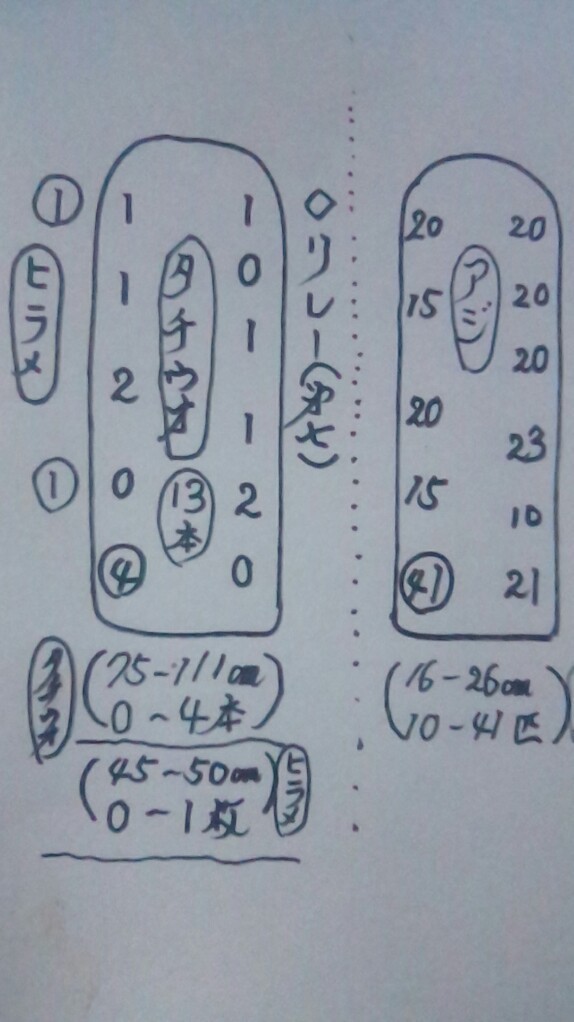 20 20
アジ
15 20
20
20
23
15
10
㊶ 21
(16-26cm
10-41匹)
◇リレー(
① 1 1
ヒラメ
タチウオ
1 0
1
2
1
① 0 2
13本
④ 0
タチウオ
(75-111cm
0~4本)
(45~50cm
0~1枚)
ヒラメ